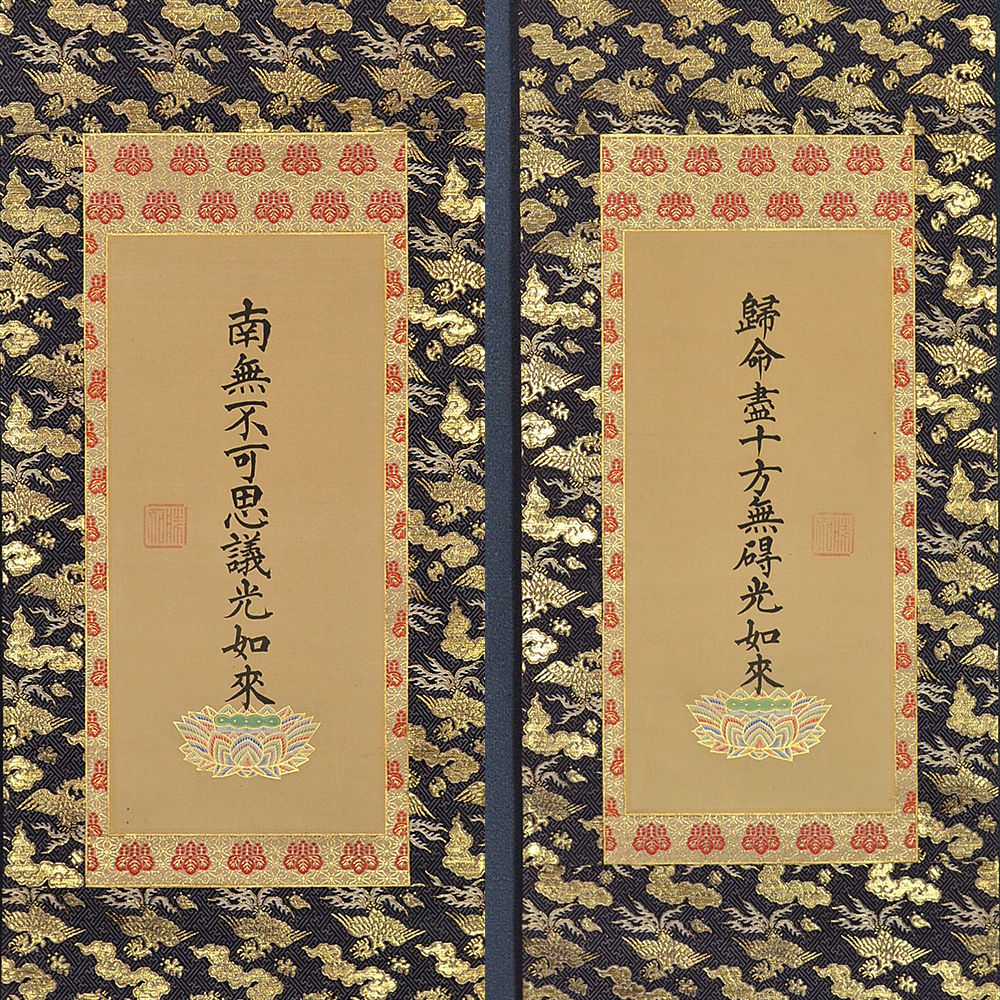 歸命盡十方無碍光如來
南無不可思議光如來